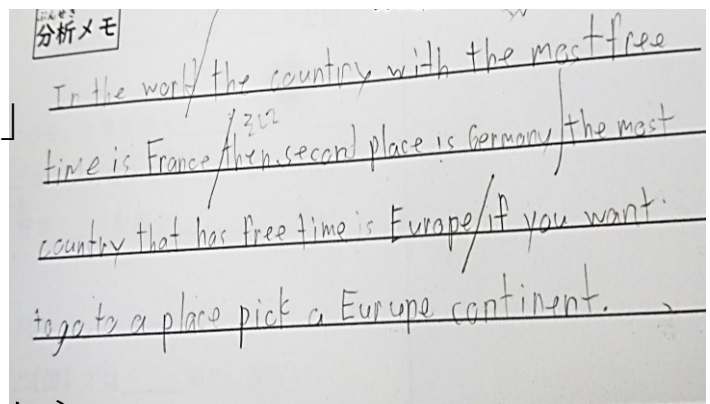 ぶんせき
分析メモ
In the world/the country with the most free
そして
time is France/then second place is Germany/the most
country that has free time is Europe/if you want
to go to a place pick a Europe continent.